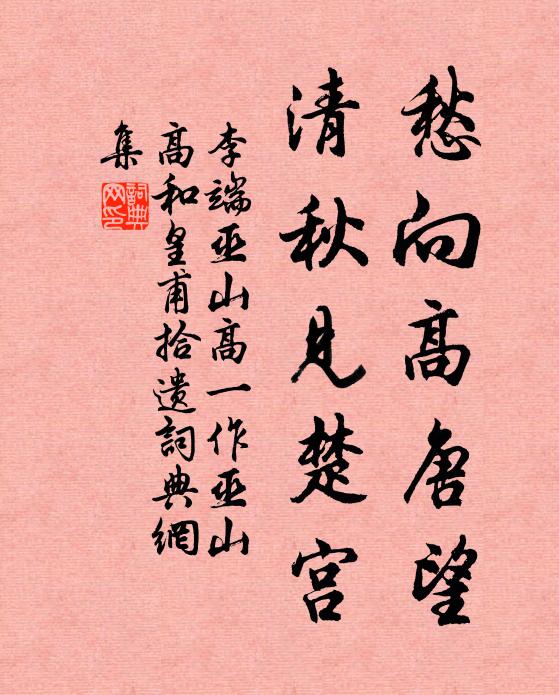 愁向高唐望
清秋见楚宫
李端巫山高一作巫山
高和皇甫拾遗詞典網
集
詞典网印